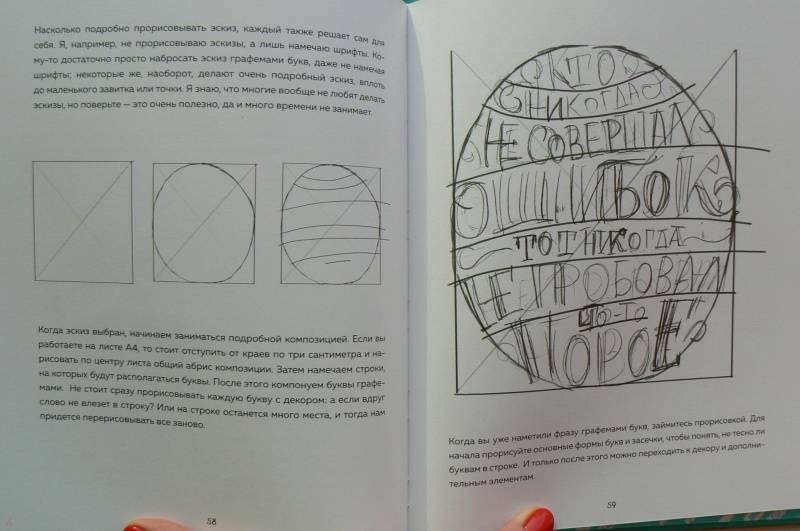 Насколько подробно прорисовывать эскиз, каждый также решает сам для
себя. Я, например, не прорисовываю эскизы, а лишь намечаю шрифты. Ко-
му-то достаточно просто набросать эскиз графемами букв, даже не намечая
шрифты; некоторые же, наоборот, делают очень подробный эскиз, вплоть
до маленького завитка или точки. Я знаю, что многие вообще не любят делать
эскизы, но поверьте — это очень полезно, да и много времени не занимает.
Когда эскиз выбран, начинаем заниматься подробной композицией. Если вы
работаете на листе А4, то стоит отступить от краев по три сантиметра и на-
рисовать по центру листа общий абрис композиции. Затем намечаем строки,
на которых будут располагаться буквы. После этого компонуем буквы графе-
мами. Не стоит сразу прорисовывать каждую букву с декором: а если вдруг
слово не влезет в строку? Или на строке останется много места, и тогда нам
придется перерисовывать все заново.
58
КТО
НИКОГДА
НЕ СОВЕРШАЛ
ОШИБОК
ТОТ НИКОГДА
НЕ ПРОБОВАЛ
ЧТО-ТО
НОВОЕ
Когда вы уже наметили фразу графемами букв, займитесь прорисовкой. Для
начала прорисуйте основные формы букв и засечки, чтобы понять, не тесно ли
буквам в строке. И только после этого можно переходить к декору и дополни-
тельным элементам.
59